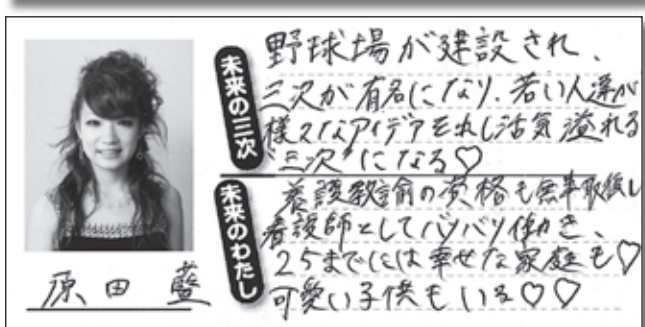 未来の三次
野球場が建設され、
三次が有名になり、若い人達が
様々なアイデアを出し活気溢れる
"三次"になる♡
未来のわたし
養護教諭の資格も無事取得し
看護師としてバリバリ働き、
25までには幸せな家庭も♡
可愛い子供もいる♡♡
原田 藍